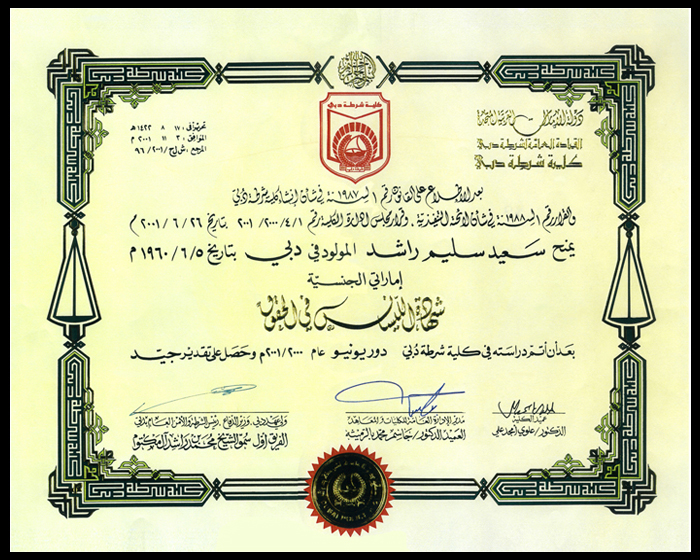 كلية شرطة دبي
دولة الإمارات العربية المتحدة
القيادة العامة لشرطة دبي
كلية شرطة دبي
تحريراً في: ١٧ / ٨ / ١٤٢٢هـ
الموافق: ٣ / ١١ / ٢٠٠١م
المرجع: ش ل ح / ٢٠٠١ / ٩٦
بعد الاطلاع على القانون رقم ١ لسنة ١٩٨٧ في شأن إنشاء كلية شرطة دبي
والقرار رقم ١ لسنة ١٩٨٨ في شأن اللائحة التنفيذية، وقرار مجلس إدارة الكلية رقم ٢٠٠١/٢٠٠٠/٤/١ بتاريخ ٢٠٠١/٦/٢٦م
يمنح سعيد سليم راشد المولود في دبي بتاريخ ١٩٦٠/٦/٥م
إماراتي الجنسية
شهادة الليسانس في الحقوق
بعد أن أتم دراسته في كلية شرطة دبي دور يونيو عام ٢٠٠١/٢٠٠٠م وحصل على تقدير جيد
عميد الكلية
الدكتور/ علوي أمجد علي
مدير الإدارة العامة للكليات والمعاهد
العميد الدكتور/ جاسم محمد بالرميثة
ولي عهد دبي، وزير الدفاع، رئيس الشرطة والأمن العام بدبي
الفريق أول سمو الشيخ محمد بن راشد آل مكتوم